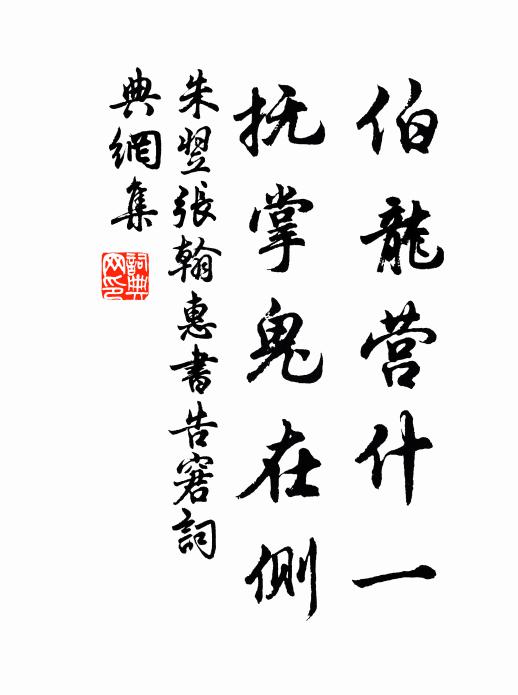 伯龍营什一
抚掌鬼在側
朱翌張翰惠書告窘詞
典網集
詞典网印